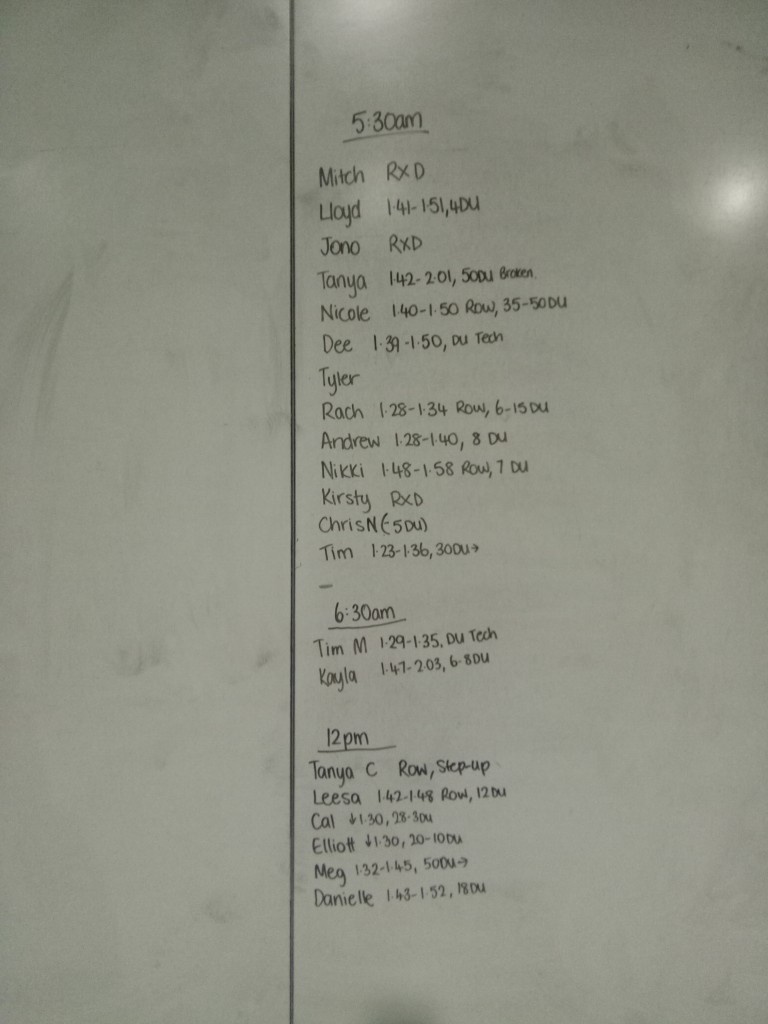 5:30am
Mitch RXD
Lloyd 1.41-1.51, 4DU
Jono RXD
Tanya 1.42-2.01, 50DU Broken.
Nicole 1.40-1.50 Row, 35-50DU
Dee 1.39-1.50, DU Tech
Tyler
Rach 1.28-1.34 Row, 6-15DU
Andrew 1.28-1.40, 8 DU
Nikki 1.48-1.58 Row, 7 DU
Kirsty RXD
Chris N (-5DU)
Tim 1.23-1.36, 30DU→
–
6:30am
Tim M 1.29-1.35, DU Tech
Kayla 1.47-2.03, 6-8DU
12pm
Tanya C Row, Step-up
Leesa 1.42-1.48 Row, 12DU
Cal ↓1.30, 28-3DU
Elliott ↓1.30, 20-10DU
Meg 1.32-1.45, 50DU→
Danielle 1.43-1.52, 18DU